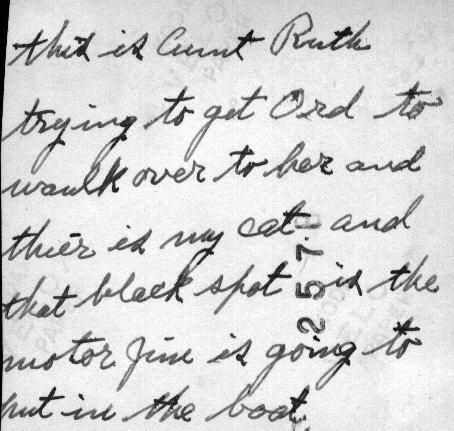 this is Aunt Ruth
trying to get Ord to
waulk over to her and
thier is my cat and
that black spot is the
motor Jim is going to
put in the boat.
2571